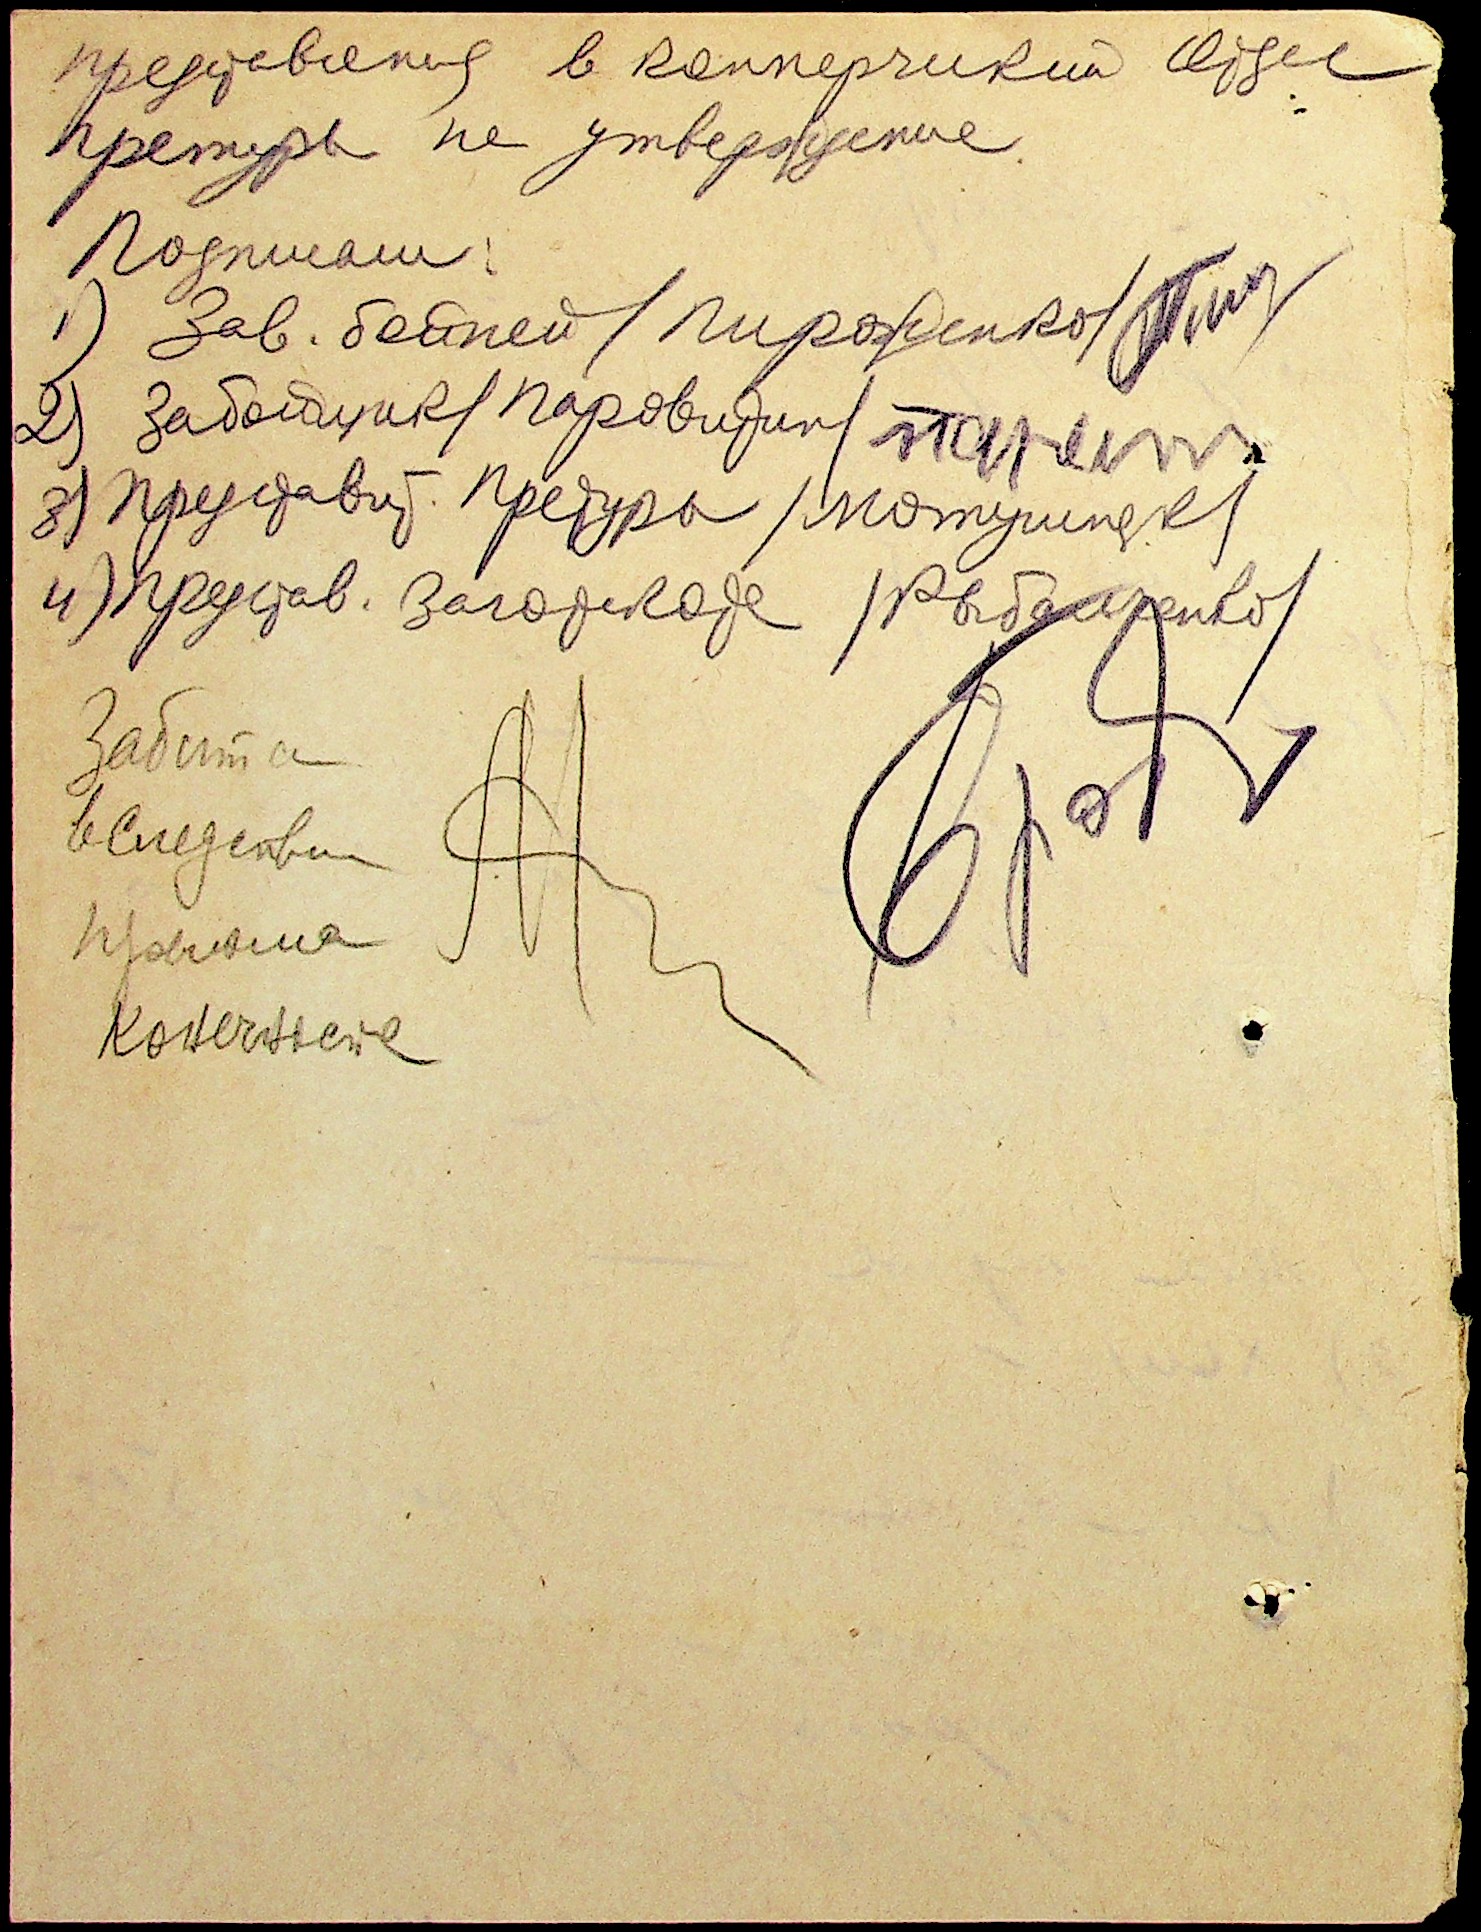 представления в коммерчикий Отдел
претуры на утверждение.
Подписали:
1) Зав. бойней /Пироженко/
2) Забойщик /Паровишин/
3) Представит. Претуры /Мотушиндк/
4) Представ. Заготскота /Рыбалченко/
Забита
вследствии
прелома
конечности